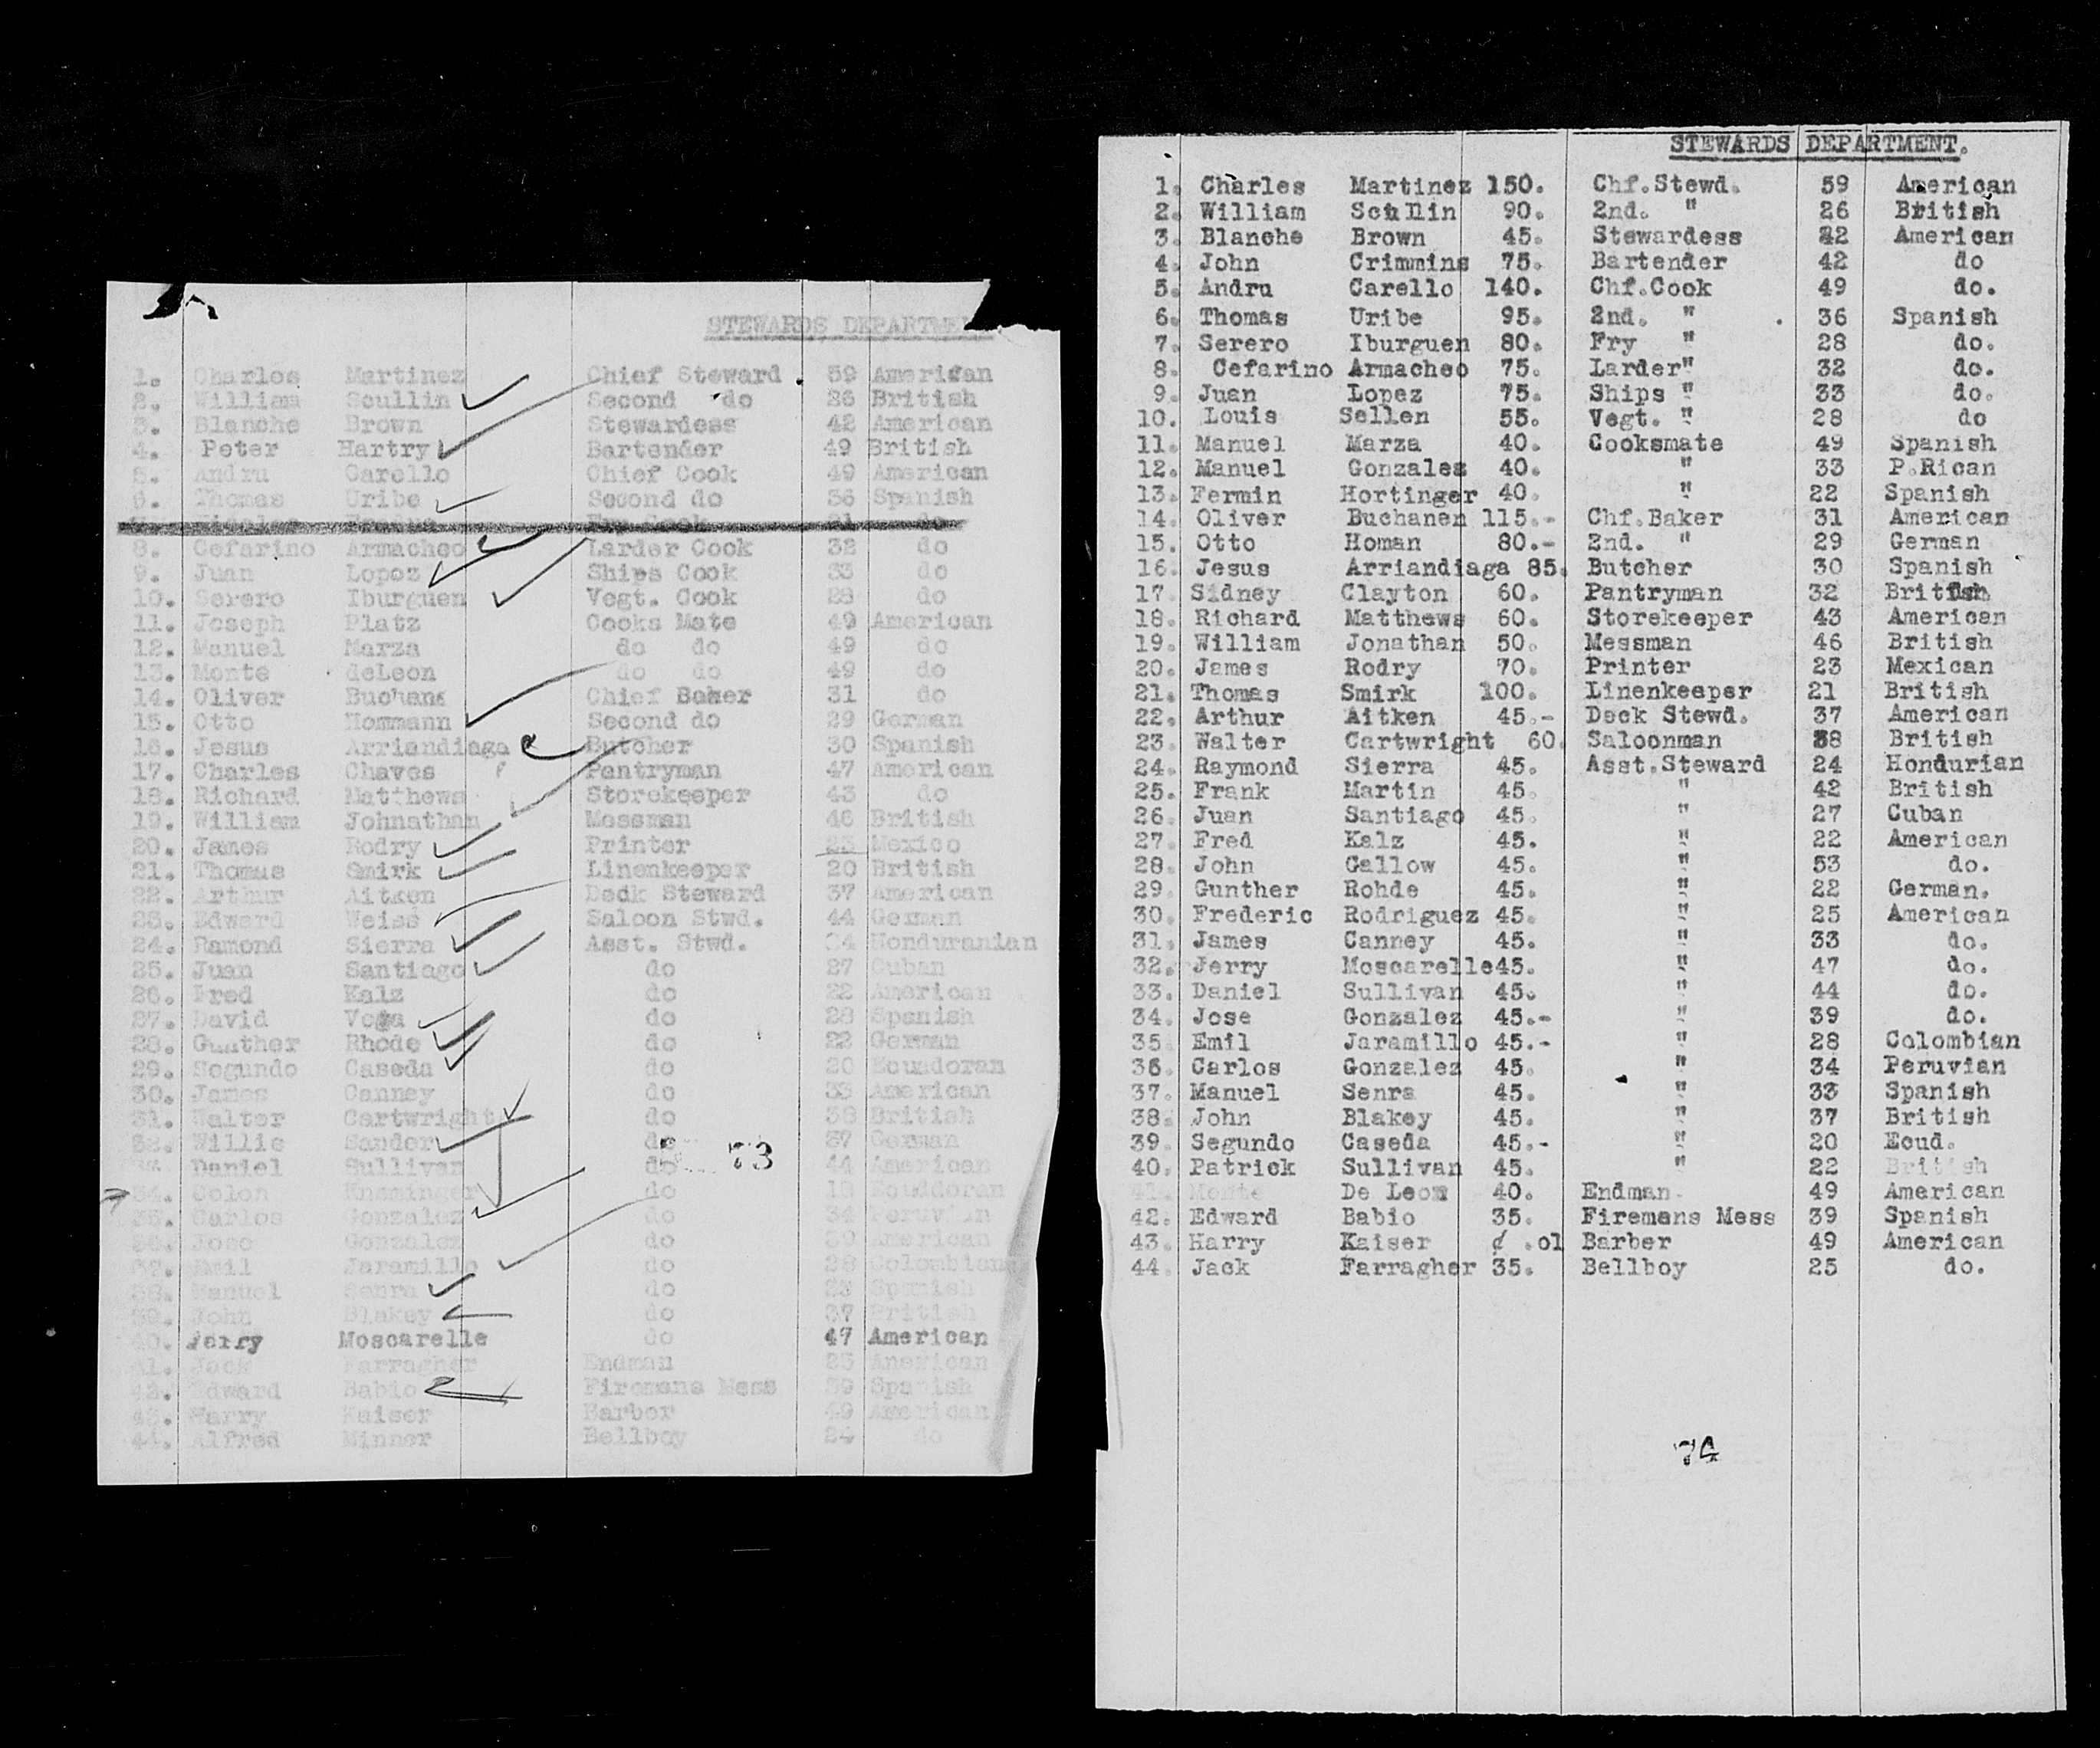 STEWARDS DEPARTMEN
1. Charles Martinez Chief Steward 59 American
2. William Scullin Second do 26 British
3. Blanche Brown Stewardess 42 American
4. Peter Hartry Bartender 49 British
5. Andru Carello Chief Cook 49 American
6. Thomas Uribe Second do 36 Spanish
8. Cefarino Armacheo Larder Cook 32 do
9. Juan Lopez Ships Cook 33 do
10. Serero Iburguen Vegt. Cook 28 do
11. Joseph Platz Cooks Mate 49 American
12. Manuel Marza do do 49 do
13. Monte deLeon do do 49 do
14. Oliver Buchane Chief Baker 31 do
15. Otto Hommann Second do 29 German
16. Jesus Arriandiaga Butcher 30 Spanish
17. Charles Chaves Pantryman 47 American
18. Richard Matthews Storekeeper 43 do
19. William Johnathan Messman 46 British
20. James Rodry Printer 23 Mexico
21. Thomas Smirk Linenkeeper 20 British
22. Arthur Aitken Deck Steward 37 American
23. Edward Weiss Saloon Stwd. 44 German
24. Ramond Sierra Asst. Stwd. 24 Honduranian
25. Juan Santiago do 27 Cuban
26. Fred Kalz do 22 American
27. David Vega do 28 Spanish
28. Gunther Rhode do 22 German
29. Segundo Caseda do 20 Ecuadoran
30. James Canney do 33 American
31. Walter Cartwright do 38 British
32. Willie Sander do 37 German
Daniel Sullivan do 44 American
73
34. Colon Ensminger do 18 Ecuadoran
35. Carlos Gonzalez do 34 Peruvian
36. Jose Gonzalez do 39 American
37. Emil Jaramillo do 28 Colombian
38. Manuel Senra do 33 Spanish
39. John Blakey do 37 British
40. Jerry Moscarelle do 47 American
41. Jack Farragher Endman 25 American
42. Edward Babio Firemans Mess 39 Spanish
43. Harry Kaiser Barber 49 American
44. Alfred Minner Bellboy 24 do
STEWARDS DEPARTMENT.
1. Charles Martinez 150. Chf.Stewd. 59 American
2. William Scullin 90. 2nd. " 26 British
3. Blanche Brown 45. Stewardess 42 American
4. John Crimmins 75. Bartender 42 do
5. Andru Carello 140. Chf.Cook 49 do.
6. Thomas Uribe 95. 2nd. " 36 Spanish
7. Serero Iburguen 80. Fry " 28 do.
8. Cefarino Armacheo 75. Larder" 32 do.
9. Juan Lopez 75. Ships " 33 do.
10. Louis Sellen 55. Vegt. " 28 do
11. Manuel Marza 40. Cooksmate 49 Spanish
12. Manuel Gonzales 40. " 33 P.Rican
13. Fermin Hortinger 40. " 22 Spanish
14. Oliver Buchanen 115.- Chf.Baker 31 American
15. Otto Homan 80.- 2nd. " 29 German
16. Jesus Arriandiaga 85. Butcher 30 Spanish
17. Sidney Clayton 60. Pantryman 32 British
18. Richard Matthews 60. Storekeeper 43 American
19. William Jonathan 50. Messman 46 British
20. James Rodry 70. Printer 23 Mexican
21. Thomas Smirk 100. Linenkeeper 21 British
22. Arthur Aitken 45.- Deck Stewd. 37 American
23. Walter Cartwright 60. Saloonman 38 British
24. Raymond Sierra 45. Asst.Steward 24 Hondurian
25. Frank Martin 45. " 42 British
26. Juan Santiago 45. " 27 Cuban
27. Fred Kalz 45. " 22 American
28. John Gallow 45. " 53 do.
29. Gunther Rohde 45. " 22 German.
30. Frederic Rodriguez 45. " 25 American
31. James Canney 45. " 33 do.
32. Jerry Moscarelle45. " 47 do.
33. Daniel Sullivan 45. " 44 do.
34. Jose Gonzalez 45.- " 39 do.
35 Emil Jaramillo 45.- " 28 Colombian
36. Carlos Gonzalez 45. " 34 Peruvian
37. Manuel Senra 45. " 33 Spanish
38. John Blakey 45. " 37 British
39. Segundo Caseda 45.- " 20 Ecud.
40. Patrick Sullivan 45. " 22 British
41. Monte De Leon 40. Endman 49 American
42. Edward Babio 35. Firemans Mess 39 Spanish
43. Harry Kaiser ¢ .01 Barber 49 American
44. Jack Farragher 35. Bellboy 25 do.
74